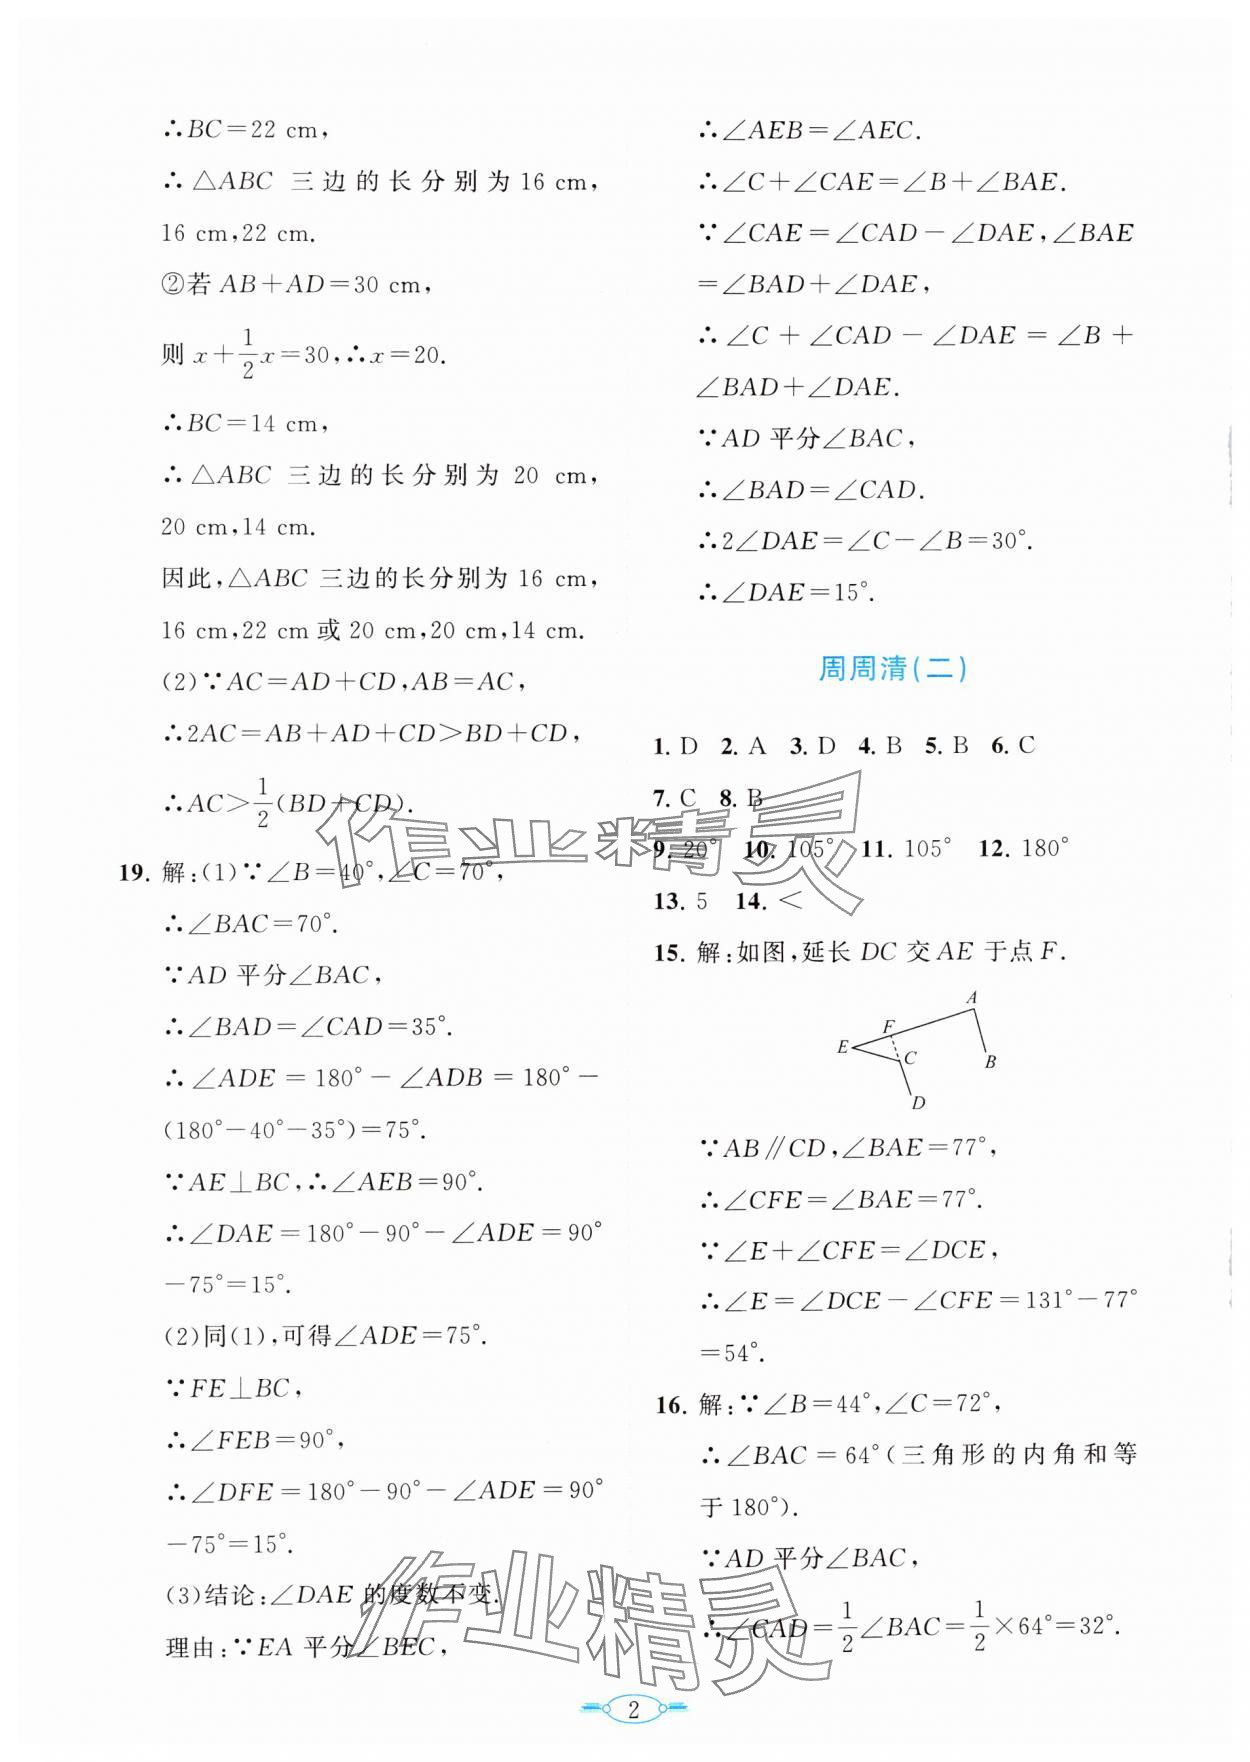 ∴BC=22 cm,
∴△ABC 三边的长分别为16 cm,
16 cm,22 cm.
②若 AB+AD=30 cm,
则 x+1/2x=30,∴x=20.
∴BC=14 cm,
∴△ABC 三边的长分别为 20 cm,
20 cm,14 cm.
因此,△ABC 三边的长分别为 16 cm,
16 cm,22 cm或 20 cm,20 cm,14 cm.
(2)∵AC=AD+CD,AB=AC,
∴2AC=AB+AD+CD>BD+CD,
∴AC>1/2(BD+CD).
19. 解:(1)∵∠B=40°,∠C=70°,
∴∠BAC=70°.
∵AD 平分∠BAC,
∴∠BAD=∠CAD=35°.
∴∠ADE=180°-∠ADB=180°-
(180°-40°-35°)=75°.
∵AE⊥BC,∴∠AEB=90°.
∴∠DAE=180°-90°-∠ADE=90°
-75°=15°.
(2)同(1),可得∠ADE=75°.
∵FE⊥BC,
∴∠FEB=90°,
∴∠DFE=180°-90°-∠ADE=90°
-75°=15°.
(3)结论:∠DAE 的度数不变.
理由:∵EA 平分∠BEC,
∴∠AEB=∠AEC.
∴∠C+∠CAE=∠B+∠BAE.
∵∠CAE=∠CAD-∠DAE,∠BAE
=∠BAD+∠DAE,
∴∠C+∠CAD-∠DAE=∠B+
∠BAD+∠DAE.
∵AD 平分∠BAC,
∴∠BAD=∠CAD.
∴2∠DAE=∠C-∠B=30°.
∴∠DAE=15°.
周周清(二)
1. D 2. A 3. D 4. B 5. B 6. C
7. C 8. B
9. 20° 10. 105° 11. 105° 12. 180°
13. 5 14. <
15. 解:如图,延长 DC 交 AE 于点 F.
A
F
E
C
B
D
∵AB∥CD,∠BAE=77°,
∴∠CFE=∠BAE=77°.
∵∠E+∠CFE=∠DCE,
∴∠E=∠DCE-∠CFE=131°-77°
=54°.
16. 解:∵∠B=44°,∠C=72°,
∴∠BAC=64°(三角形的内角和等
于180°).
∵AD 平分∠BAC,
∴∠CAD=1/2∠BAC=1/2×64°=32°.
作业精灵
作业精灵
2